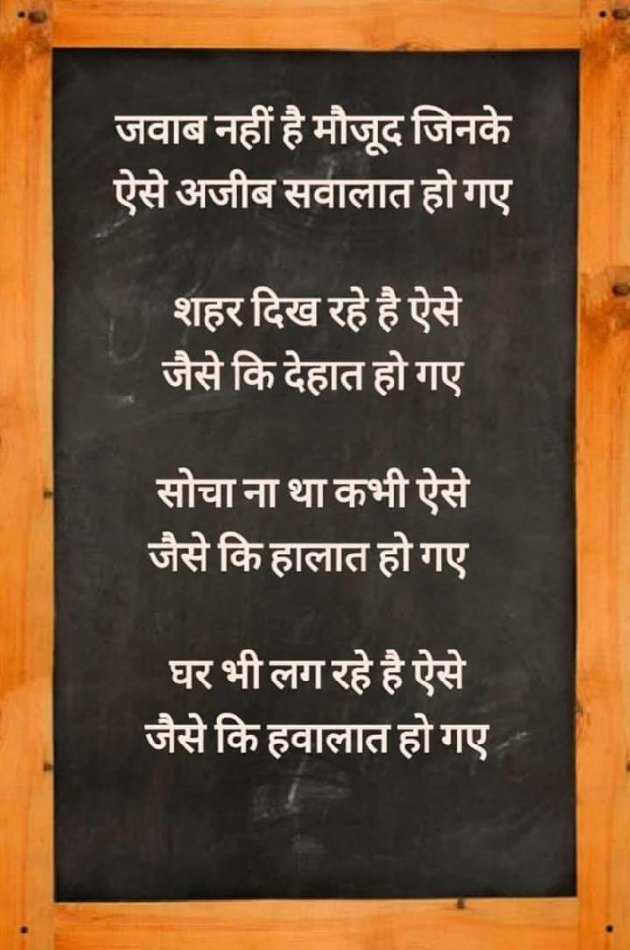 जवाब नहीं है मौजूद जिनके
ऐसे अजीब सवालात हो गए
शहर दिख रहे है ऐसे
जैसे कि देहात हो गए
सोचा ना था कभी ऐसे
जैसे कि हालात हो गए
घर भी लग रहे है ऐसे
जैसे कि हवालात हो गए